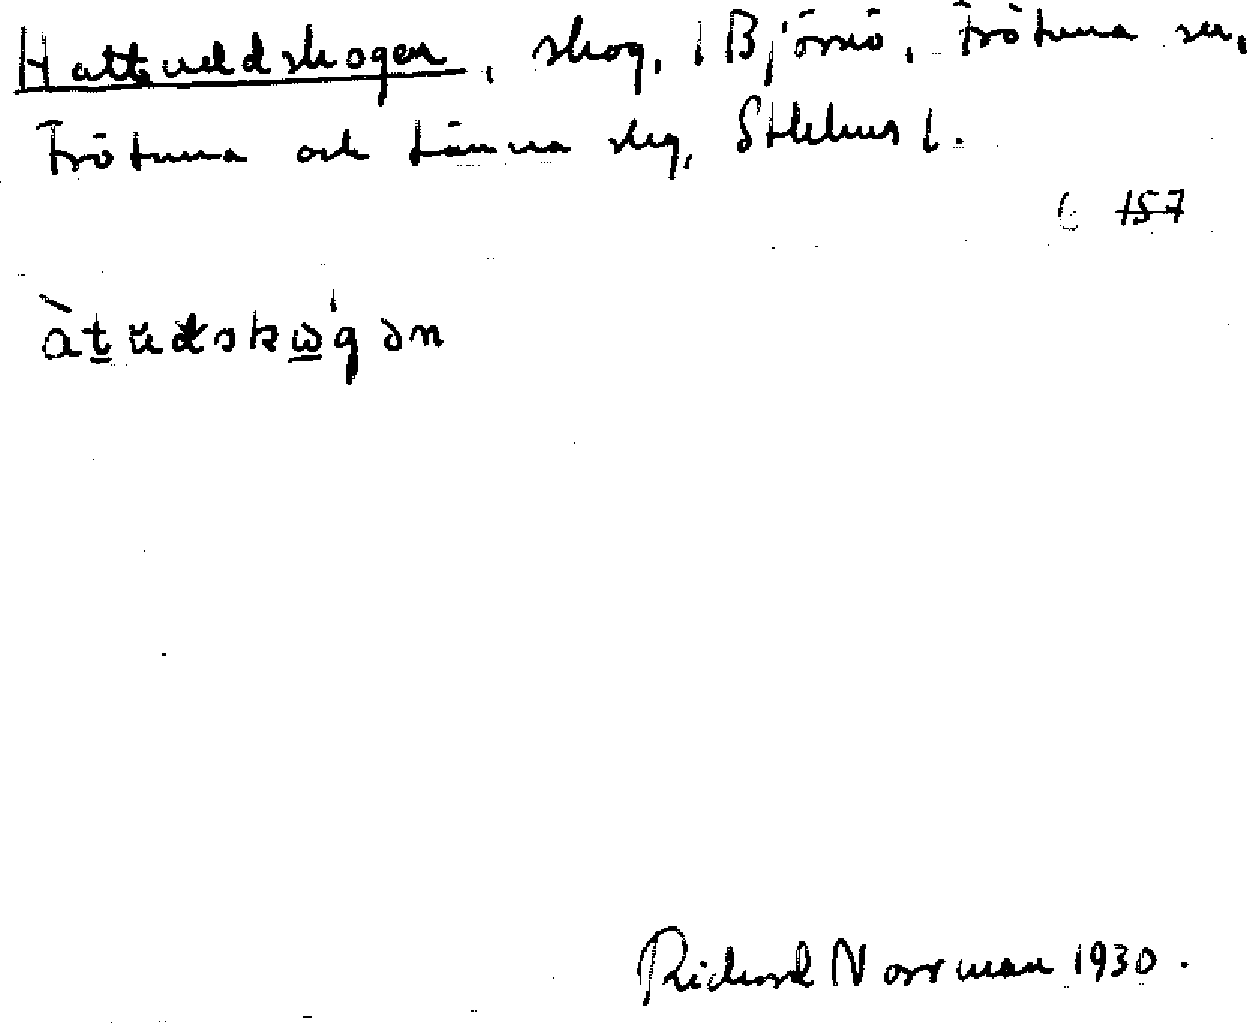 Hattuddskogen, skog, i Björnö, Frötuna sn,
Frötuna och Länna skg, Sthlms l.
157
àtudskωgən
Richard Norrman 1930.